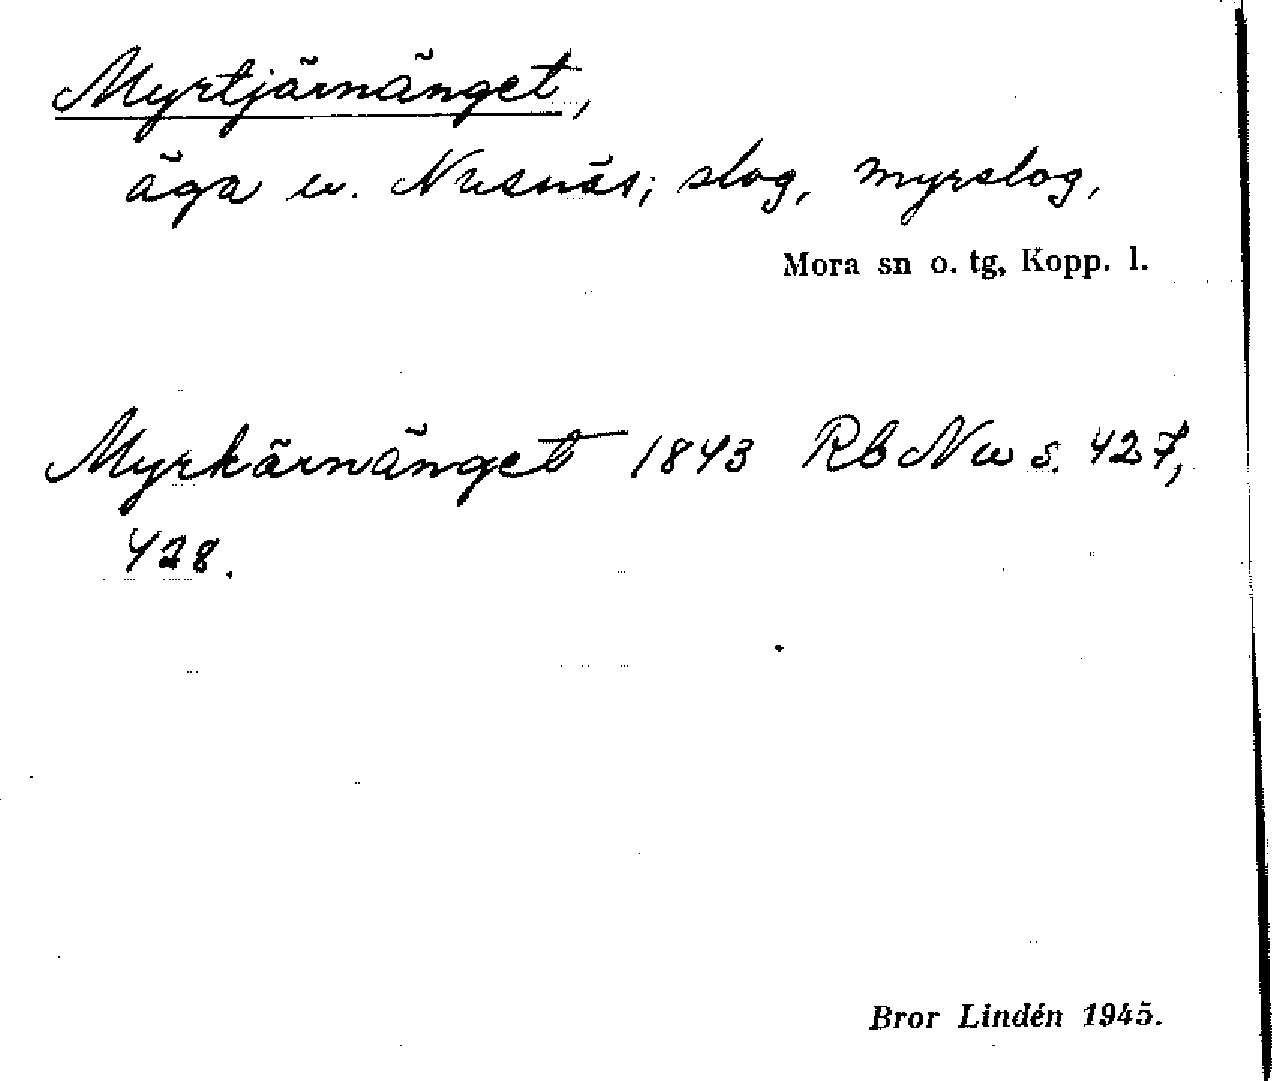 Myrtjärnänget,
äga u. Nusnäs; slog, myrslog,
Mora sn o. tg, Kopp. l.
Myrkärnänget 1843 Rb Nu s. 427,
428.
Bror Lindén 1945.